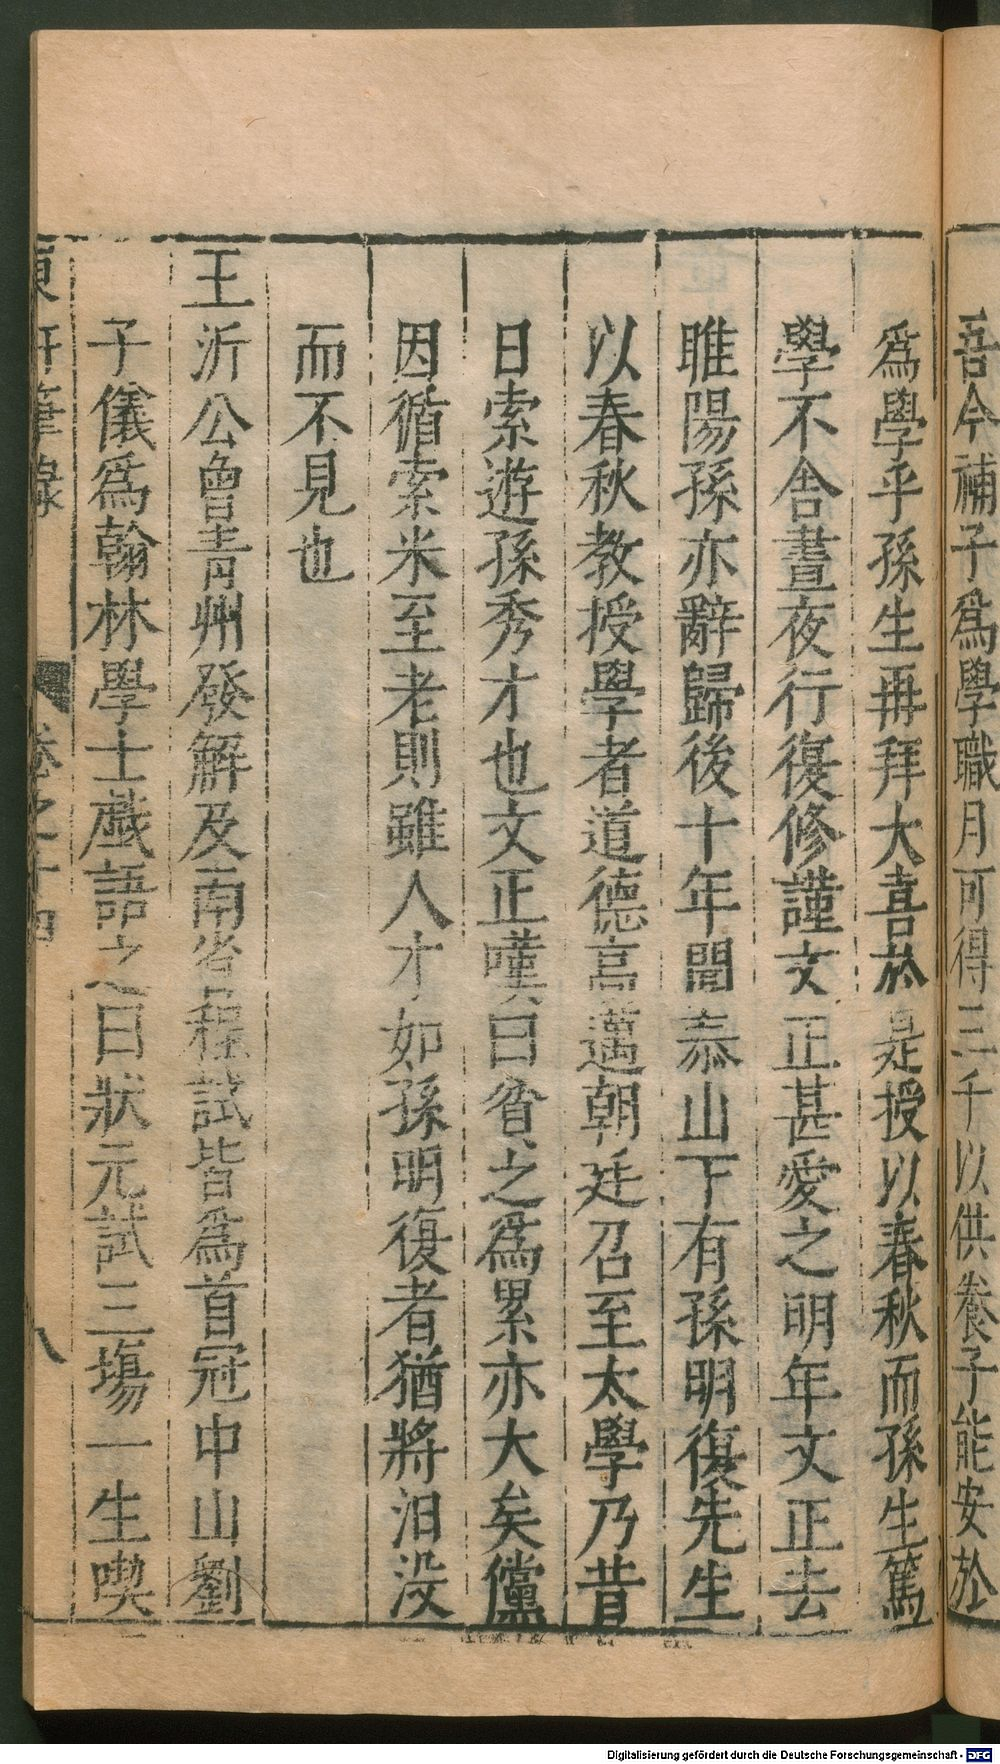 吾今補子爲學職月可得三千以供養子能安於
爲學乎孫生再拜大喜於是授以春秋而孫生篤
學不舍晝夜行復修謹文正甚愛之明年文正去
睢陽孫亦辭歸後十年聞泰山下有孫明復先生
以春秋教授學者道德高邁朝廷召至太學乃昔
日索遊孫秀才也文正嘆曰貧之爲累亦大矣儻
因循索米至老則雖人才如孫明復者猶將汨没
而不見也
王沂公曾青州發解及南省程試皆爲首冠中山劉
子儀爲翰林學士戲語之曰狀元試三塲一生喫
東軒筆錄 卷之十四 八
Digitalisierung gefördert durch die Deutsche Forschungsgemeinschaft - DFG